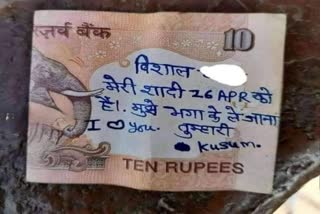 ज़र्व बैंक
10
विशाल-
मेरी शादी 26 APR को
है।. मुझे भगा के ले जाना
I ♡ you. तुम्हारी
kusum.
TEN RUPEES